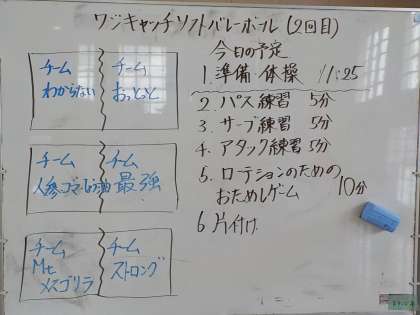 ワンキャッチソフトバレーボール(2回目)
今日の予定
1.準備・体操 11:25
2.パス練習 5分
3.サーブ練習 5分
4.アタック練習 5分
5.ロテションのための
おためしゲーム 10分
6片付け
チーム
わからない
チーム
おっとっと
チーム
チーム
最強
チーム
Mt.
メスゴリラ
チーム
ストロング